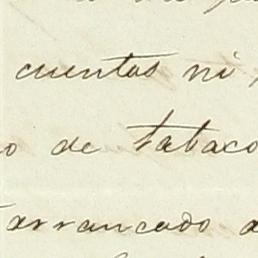 cuentas ni
o de tabaco
arrancado a